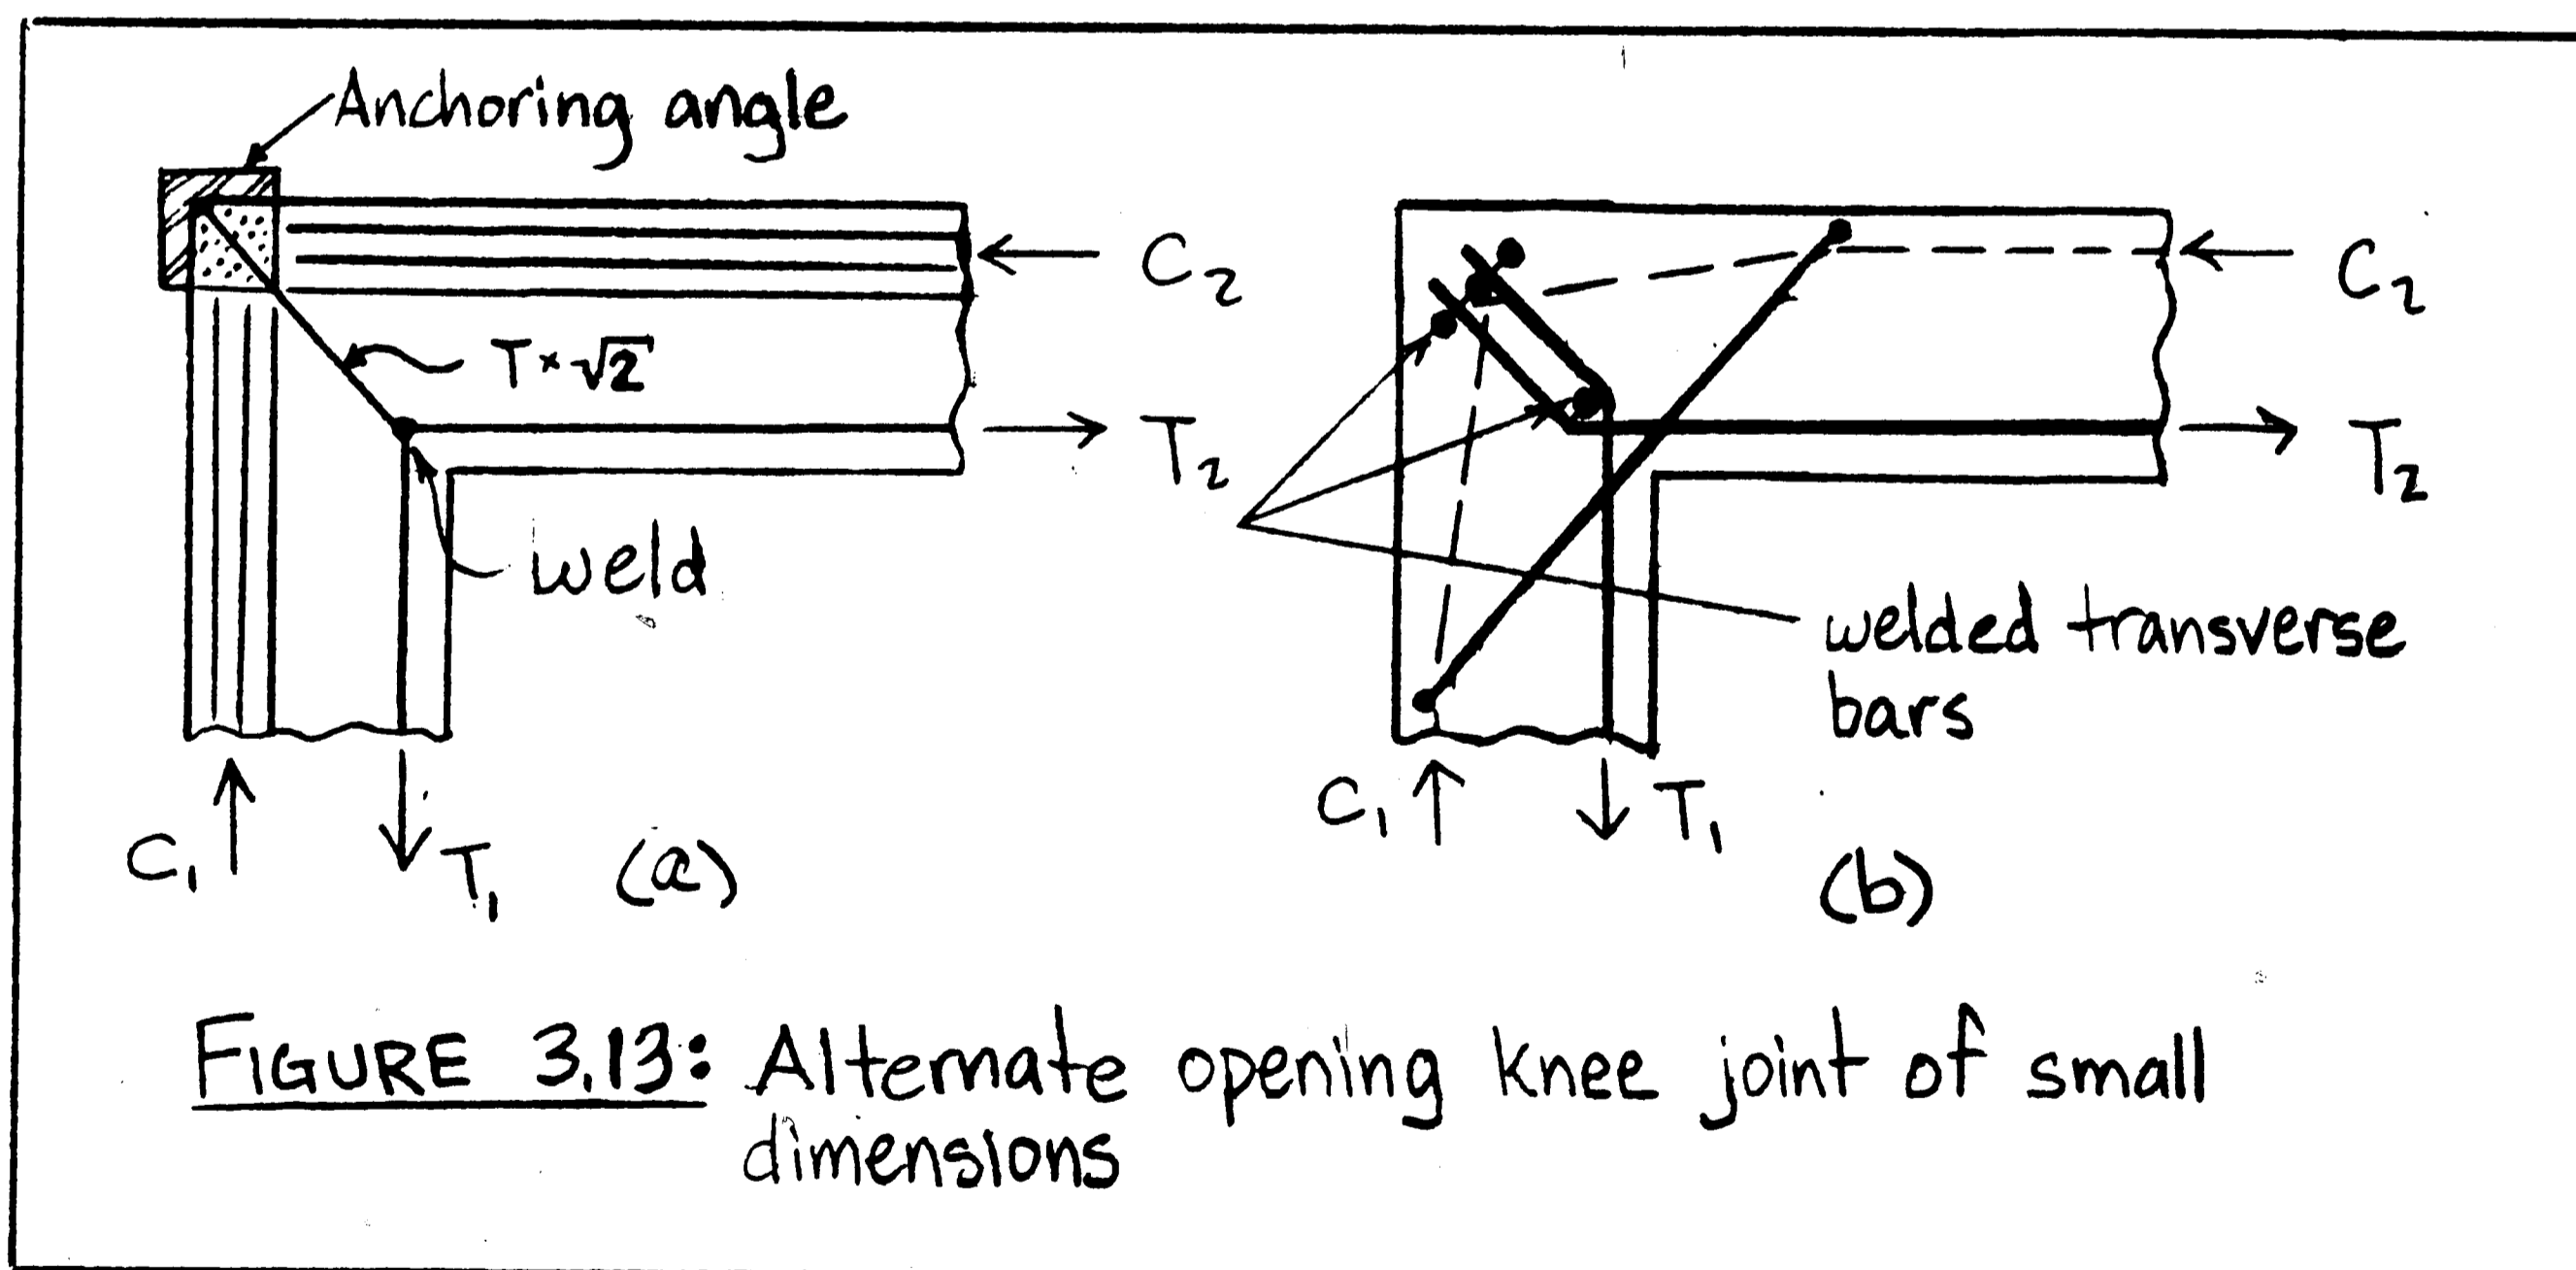 Anchoring angle
C₂
T×√2
T₂
weld
C₁
T₁
(a)
C₂
T₂
welded transverse
bars
C₁
T₁
(b)
FIGURE 3.13: Alternate opening knee joint of small
dimensions